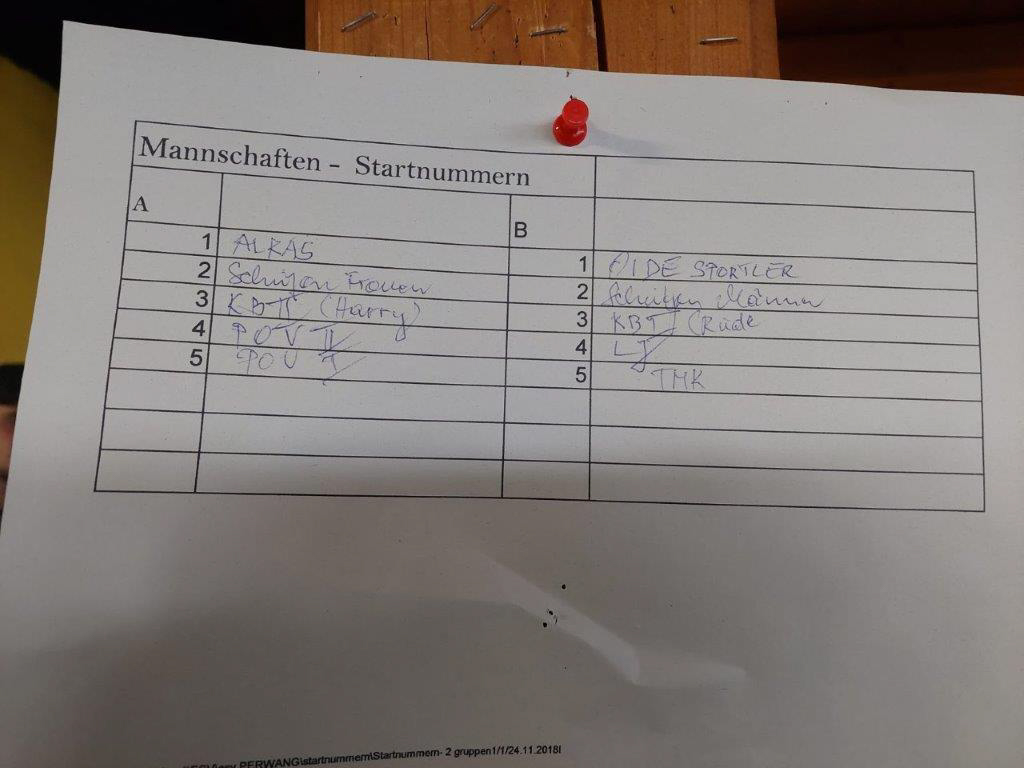 Mannschaften - Startnummern
A
B
1 ALKAS
1 OIDE SPORTLER
2 Schützen Frauen
2 Schützen Männer
3 KBT II (Harry)
3 KBT I (Rude
4 POV II
4 LJ
5 POV I
5 TMK
PERWANG\startnummern\Startnummern- 2 gruppen1/1/24.11.2018l